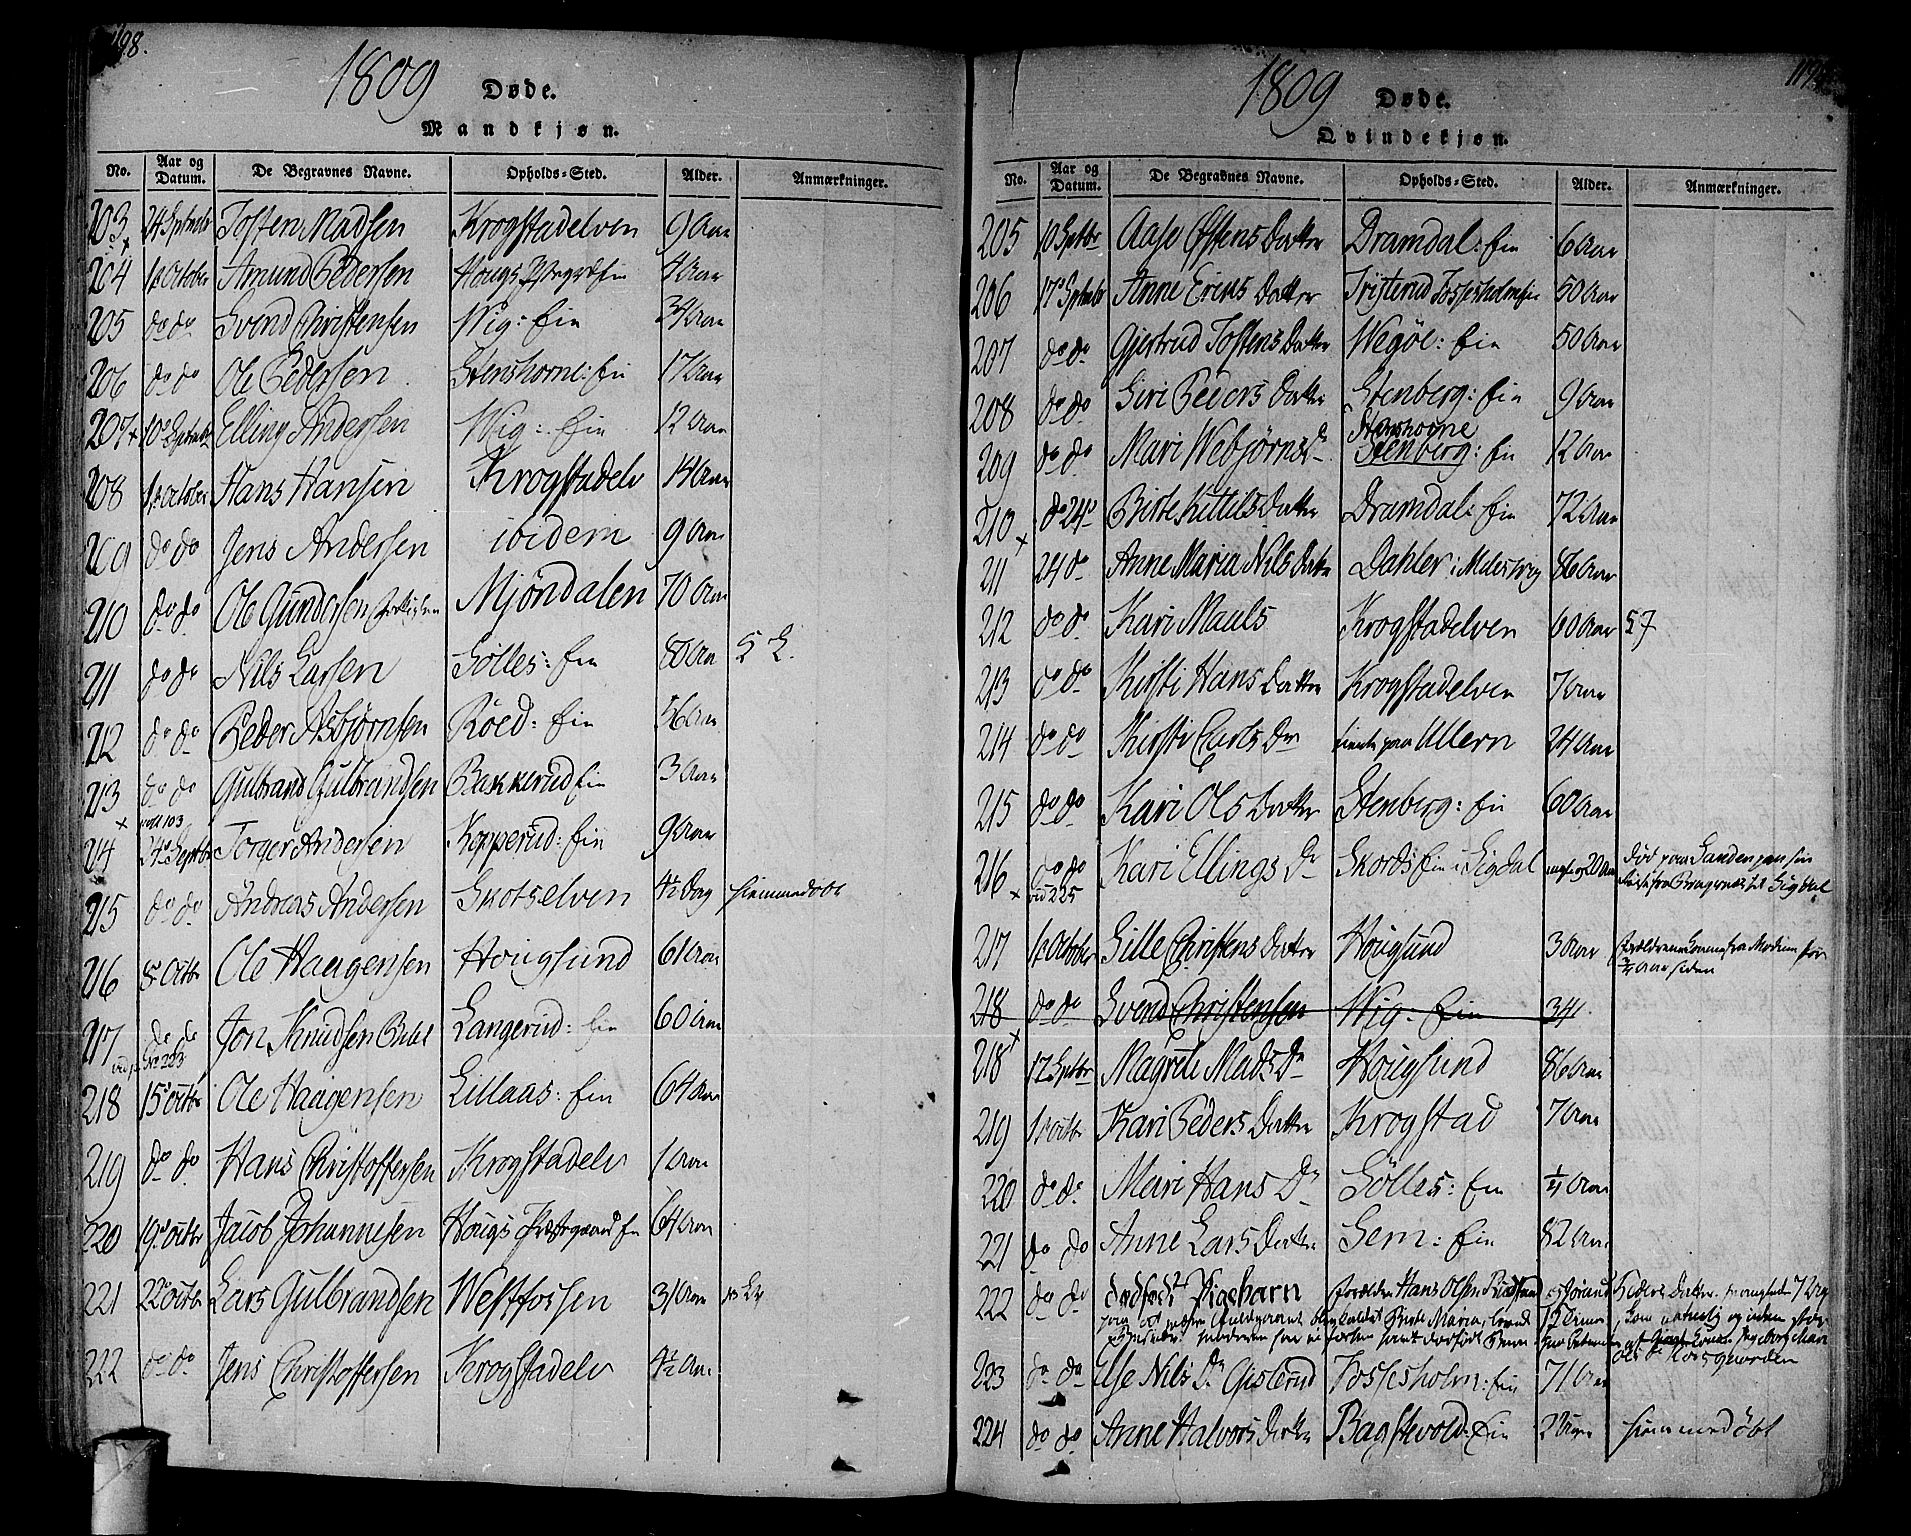 1809 Døde.
Mandkjøn.
No. Aar og Datum. De Begravnes Navne. Opholds-Sted. Alder. Anmærkninger.
203 24 Septembr Tosten Madsen Krogstadelven 9 Aar
204 1 October Amund Pedersen Hougs Eie 4 Aar
205 do do Svend Christensen Wig: Eie 34 Aar
206 do do Ole Pedersen Stenshorne: Eie 17 Aar
207 10 Septembr Elling Andersen Wig: Eie 12 Aar
208 1 October Hans Hansen Krogstadelv 14 Aar
209 do do Jens Andersen ibidem 9 Aar
210 do do Ole Gundersen Mjöndalen 70 Aar
211 do do Nils Larsen Sölles: Eie 80 Aar
212 do do Peder Asbjørnsen Röed: Eie 56 Aar
213 do do Gulbrand Gulbrandsen Bakkerud Eie 3 Aar
214 24 Septbr Torger Andersen Kopperud: Eie 9 Aar
215 do do Andreas Andersen Skotselven 4½ Dag hiemmedøbt
216 8 Octbr Ole Haagensen Hougsund 61 Aar
217 do do Jon Knudsen Langerud: Eie 60 Aar
No 223
218 15 Octbr Ole Haagensen Lillaas: Eie 64 Aar
219 do do Hans Christoffersen Krogstadelv 1 Aar
220 19 Octbr Jacob Johannesen Hougs Præstegaard Eie 64 Aar
221 22 Octbr Lars Gulbrandsen Westfossen 31 Aar
222 do do Jens Christoffersen Krogstadelv 4½ Aar
1809 Døde.
Qvindekjøn.
No. Aar og Datum. De Begravnes Navne. Opholds-Sted. Alder. Anmærkninger.
205 10 Septbr Aase Østens Datter Dramdal: Eie 6 Aar
206 17 Septembr Anne Eriks Datter Fossesholms Eie 50 Aar
207 do do Gjertrud Tostens Datter Wegöe: Eie 50 Aar
208 do do Siri Peders Datter Stenberg: Eie 9 Aar
Stenshorne
209 do do Mari Webjørns Dr Stenberg: Eie 12 Aar
210 do 24 Birte Kittils Datter Dramdal: Eie 72 Aar
211 24 do Anne Maria Nils Datter Dahler i 86 Aar
212 do do Kari Mauls Krogstadelven 60 Aar
213 do do Kirsti Hans Datter Krogstadelven 7 Aar
214 do do Kirsti Carls Dr tiente paa Ullern 24 Aar
215 do do Kari Ols Datter Stenberg: Eie 60 Aar
216 do do Kari Ellings Dr Skords Eie i Sigdal 20 Aar død paa Sanden paa sin
225 Reise fra Bragernes til Sigdal
217 1 October Sille Christens Datter Hougsund 3 Aar Forældrene komne fra Modum for
¾ Aar siden
218 do do Svend Christensen Wig: Eie 34
218 17 Septbr Magrete Mads Dr Hougsund 86 Aar
219 1 Octbr Kari Peders Datter Krogstad 7 Aar
220 do do Mari Hans Dr Sölles: Eie ¼ Aar
221 do do Anne Lars Datter Sem: Eie 82 Aar
222 do do dødfødt Pigebarn Forældre Hans Olsen
223 do do Else Nils Dr Gisterud Fossesholm: Eie 71 Aar
224 do do Anne Halvors Datter Bagstevold: Eie 2 Uger hiemmedøbt